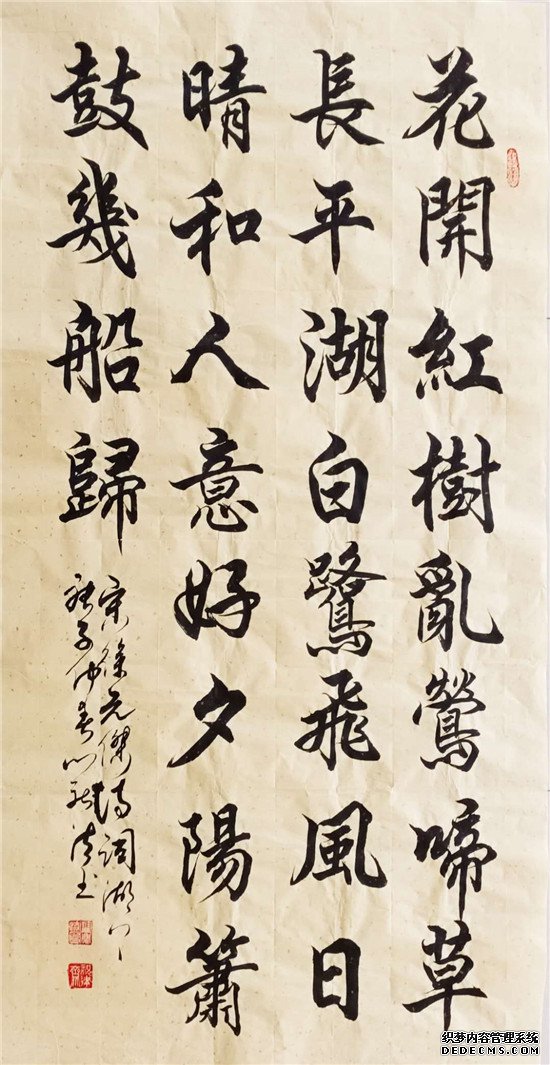 花開紅樹亂鶯啼草
長平湖白鷺飛風日
晴和人意好夕陽簫
鼓幾船歸
宋徐元傑詩詞湖上
庚子仲春
织梦内容管理系统
DEDECMS.COM